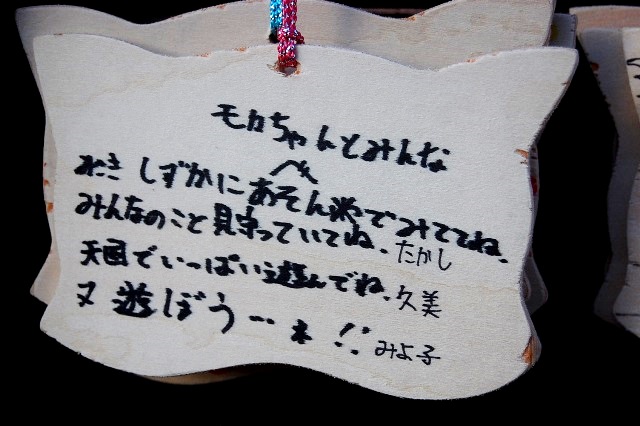 モカちゃんとみんな
しずかにあそんでみててね、
みんなのこと見守っていてね、たかし
天国でいっぱい遊んでね、久美
又遊ぼう…ね!! みよ子